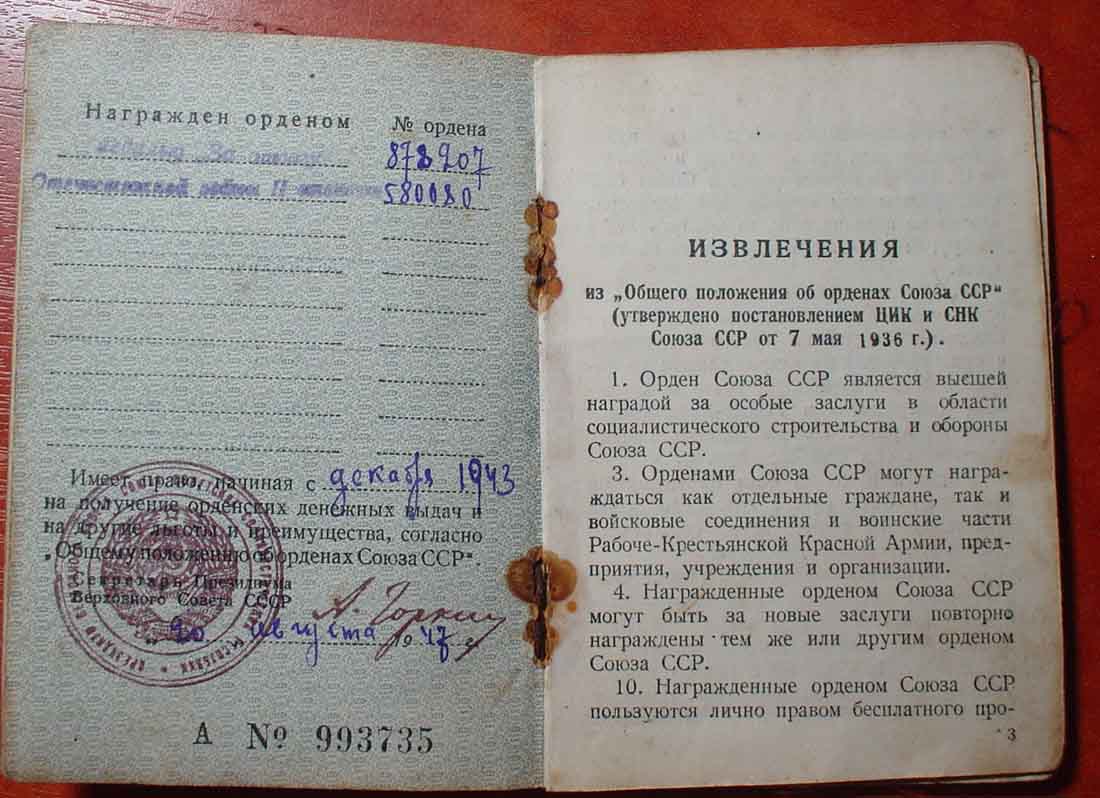 Награжден орденом
№ ордена
За
878207
Отечественной войны II степени
580080
Имеет право, начиная с декабря 1943
на получение орденских денежных выдач и
на другие льготы и преимущества, согласно
„Общему положению об орденах Союза ССР“.
Секретарь Президиума
Верховного Совета СССР
А. Горкин
„20 августа 1947 г.
А № 993735
ИЗВЛЕЧЕНИЯ
из „Общего положения об орденах Союза ССР“
(утверждено постановлением ЦИК и СНК
Союза ССР от 7 мая 1936 г.).
1. Орден Союза ССР является высшей
наградой за особые заслуги в области
социалистического строительства и обороны
Союза ССР.
3. Орденами Союза ССР могут награ-
ждаться как отдельные граждане, так и
войсковые соединения и воинские части
Рабоче-Крестьянской Красной Армии, пред-
приятия, учреждения и организации.
4. Награжденные орденом Союза ССР
могут быть за новые заслуги повторно
награждены тем же или другим орденом
Союза ССР.
10. Награжденные орденом Союза ССР
пользуются лично правом бесплатного про-
3